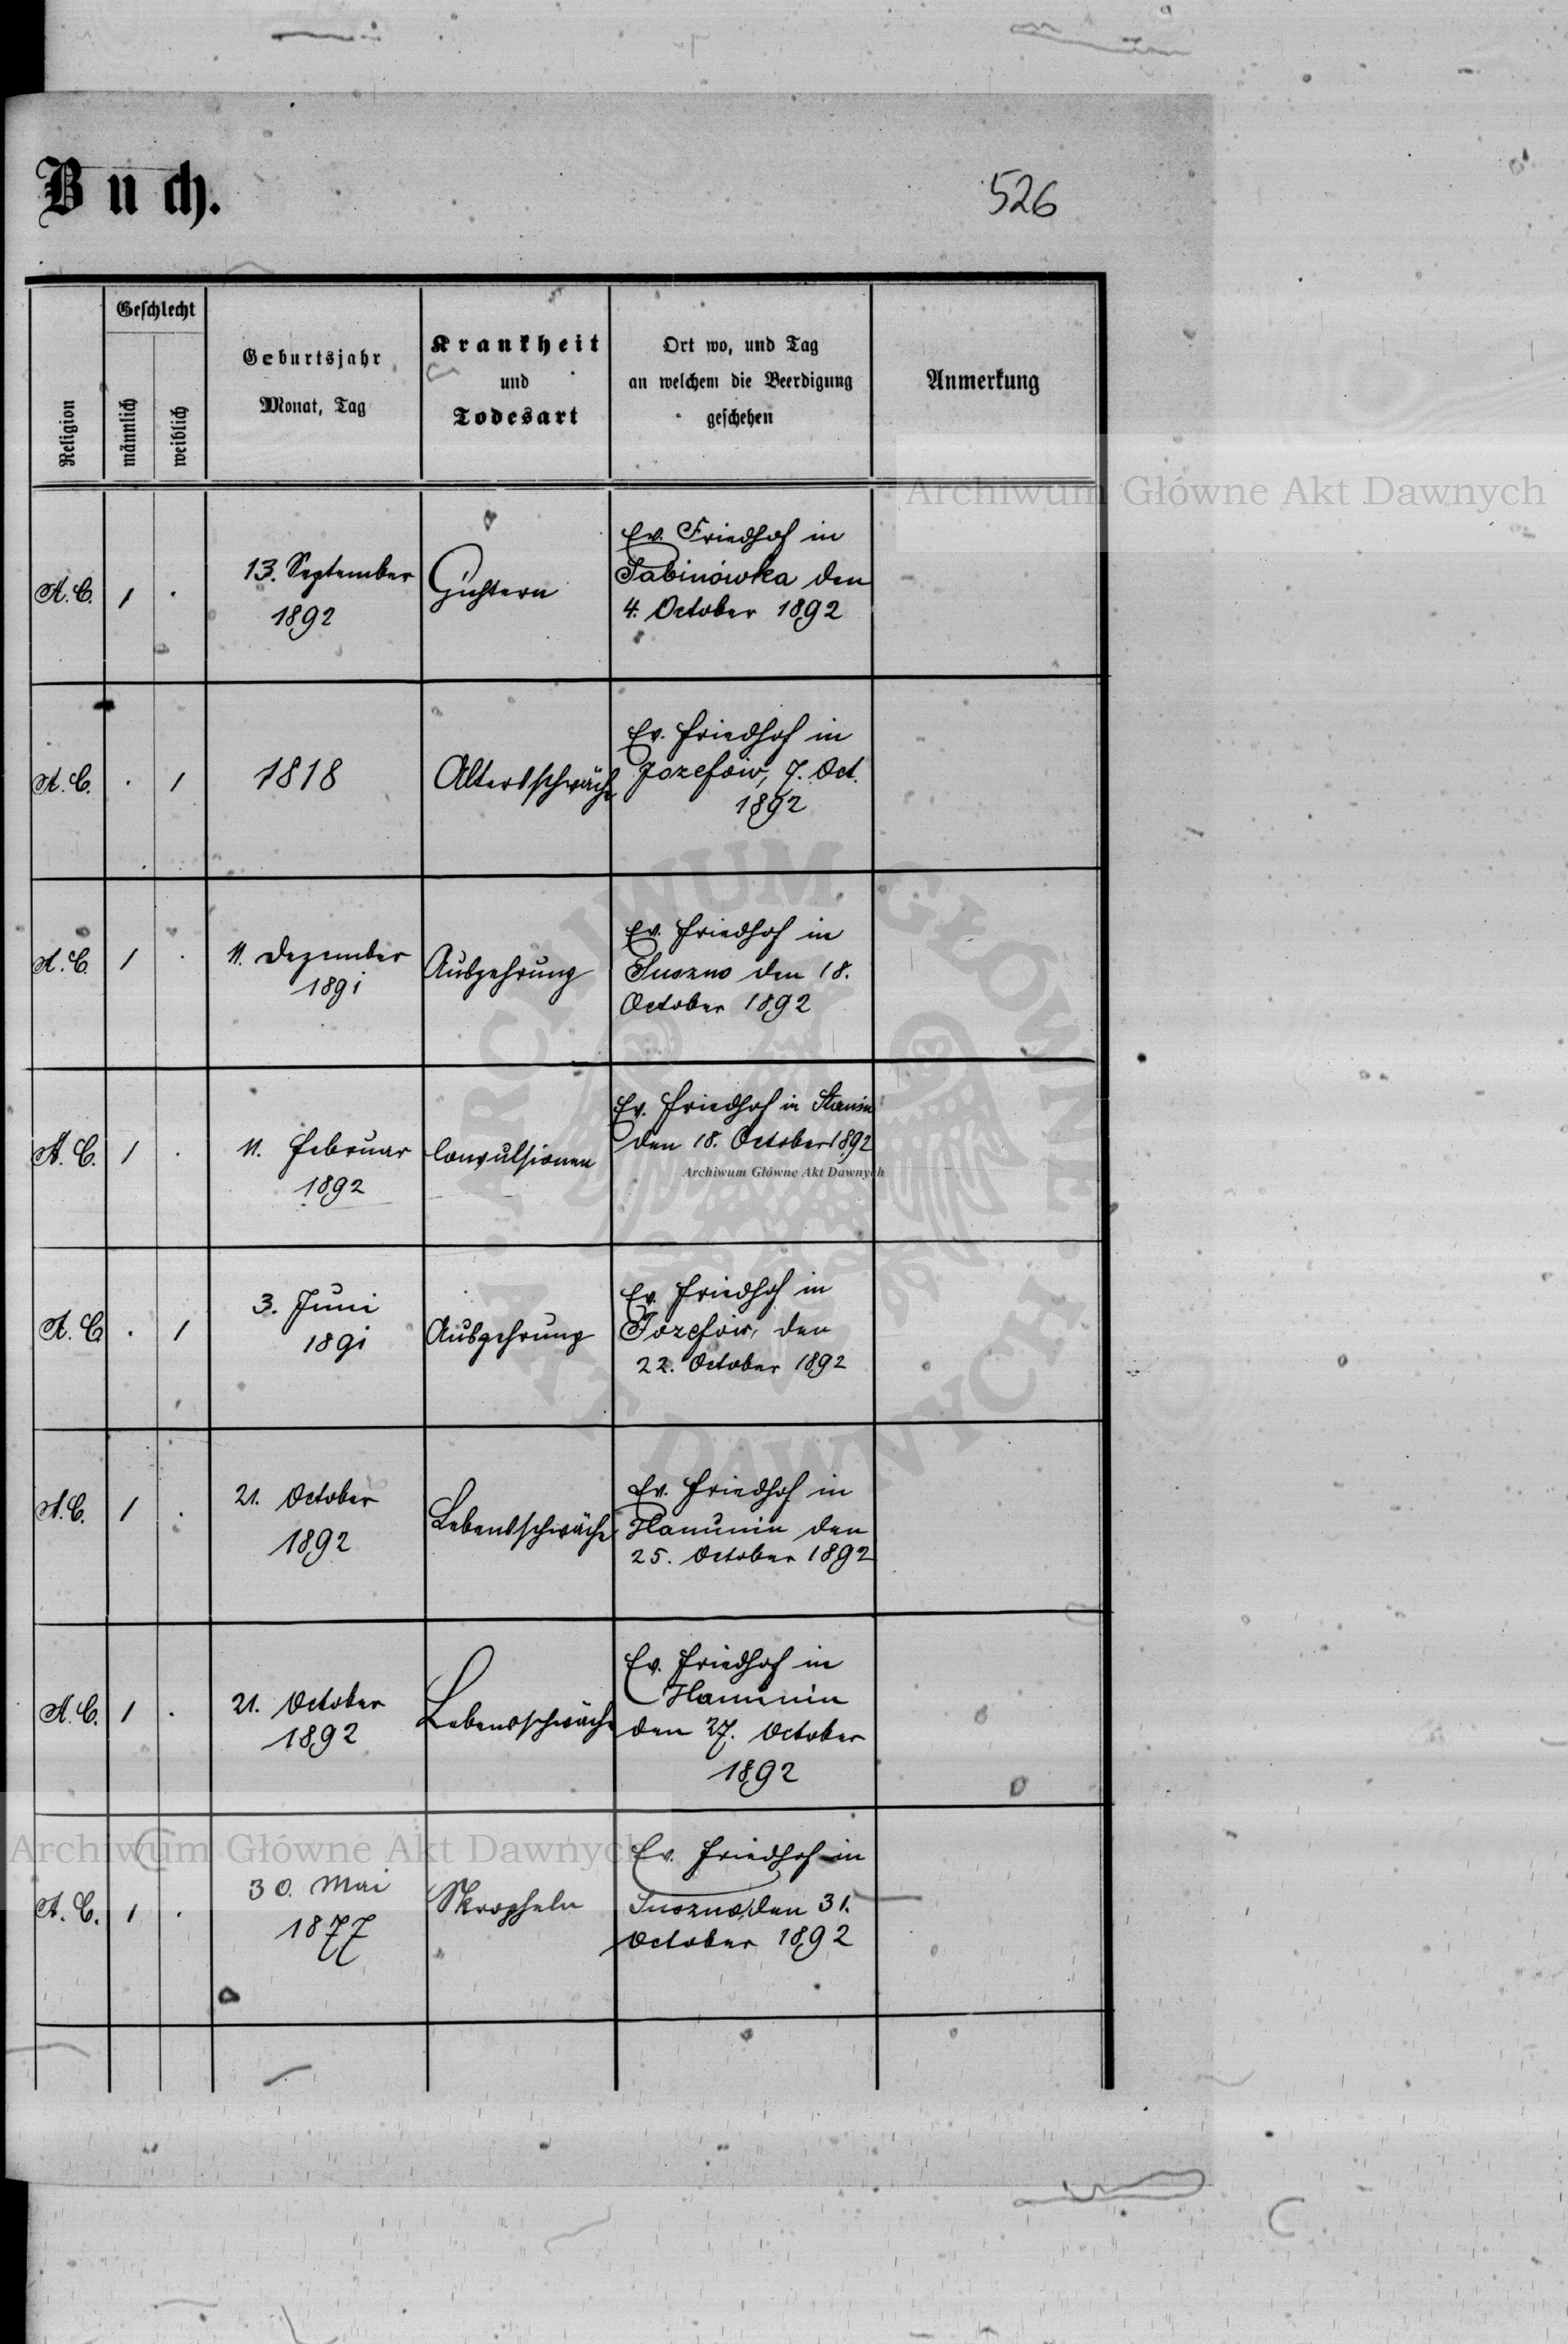 Buch.
526
Religion
Geschlecht
männlich
weiblich
Geburtsjahr
Monat, Tag
Krankheit
und
Todesart
Ort wo, und Tag
an welchem die Beerdigung
geschehen
Anmerkung
A. C. 1 .
13. September
1892
Ev. Friedhof in
Sabinówka den
4. October 1892
A. C. . 1
1818
Altersschwäche
Ev. Friedhof in
Jozefów, 7. Oct.
1892
A. C. 1 .
11. Dezember
1891
Auszehrung
Ev. Friedhof in
Suszno den 18.
October 1892
A. C. 1 .
11. Februar
1892
Convulsionen
Ev. Friedhof in Stanin
den 18. October 1892
A. C. . 1
3. Juni
1891
Auszehrung
Ev. Friedhof in
Jozefów, den
22. October 1892
A. C. 1 .
21. October
1892
Lebensschwäche
Ev. Friedhof in
Hanunin den
25. October 1892
A. C. 1 .
21. October
1892
Lebensschwäche
Ev. Friedhof in
Hanunin
den 27. October
1892
A. C. 1 .
30. Mai
1877
Skropheln
Ev. Friedhof in
Suszno, den 31.
October 1892
Archiwum Główne Akt Dawnych
Archiwum Główne Akt Dawnych
Archiwum Główne Akt Dawnych
ARCHIWUM GŁÓWNE · AKT DAWNYCH ·